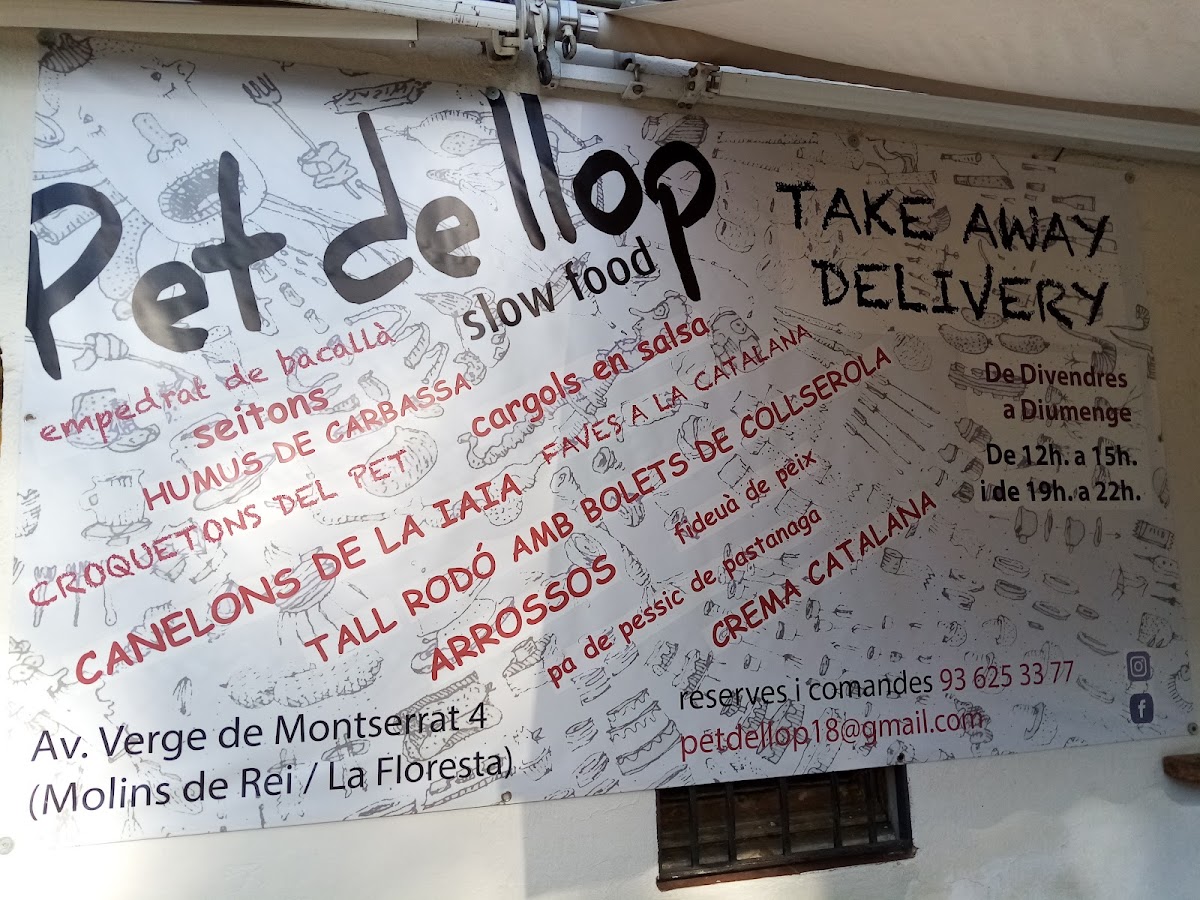 Pet de llop
slow food
TAKE AWAY
DELIVERY
empedrat de bacallà
seitons
HUMUS DE CARBASSA
cargols en salsa
CROQUETONS DEL PET
FAVES A LA CATALANA
CANELONS DE LA IAIA
TALL RODÓ AMB BOLETS DE COLLSEROLA
ARROSSOS
fideuà de peix
pa de pessic de pastanaga
CREMA CATALANA
De Divendres
a Diumenge
De 12h. a 15h.
i de 19h. a 22h.
Av. Verge de Montserrat 4
(Molins de Rei / La Floresta)
reserves i comandes 93 625 33 77
petdellop18@gmail.com